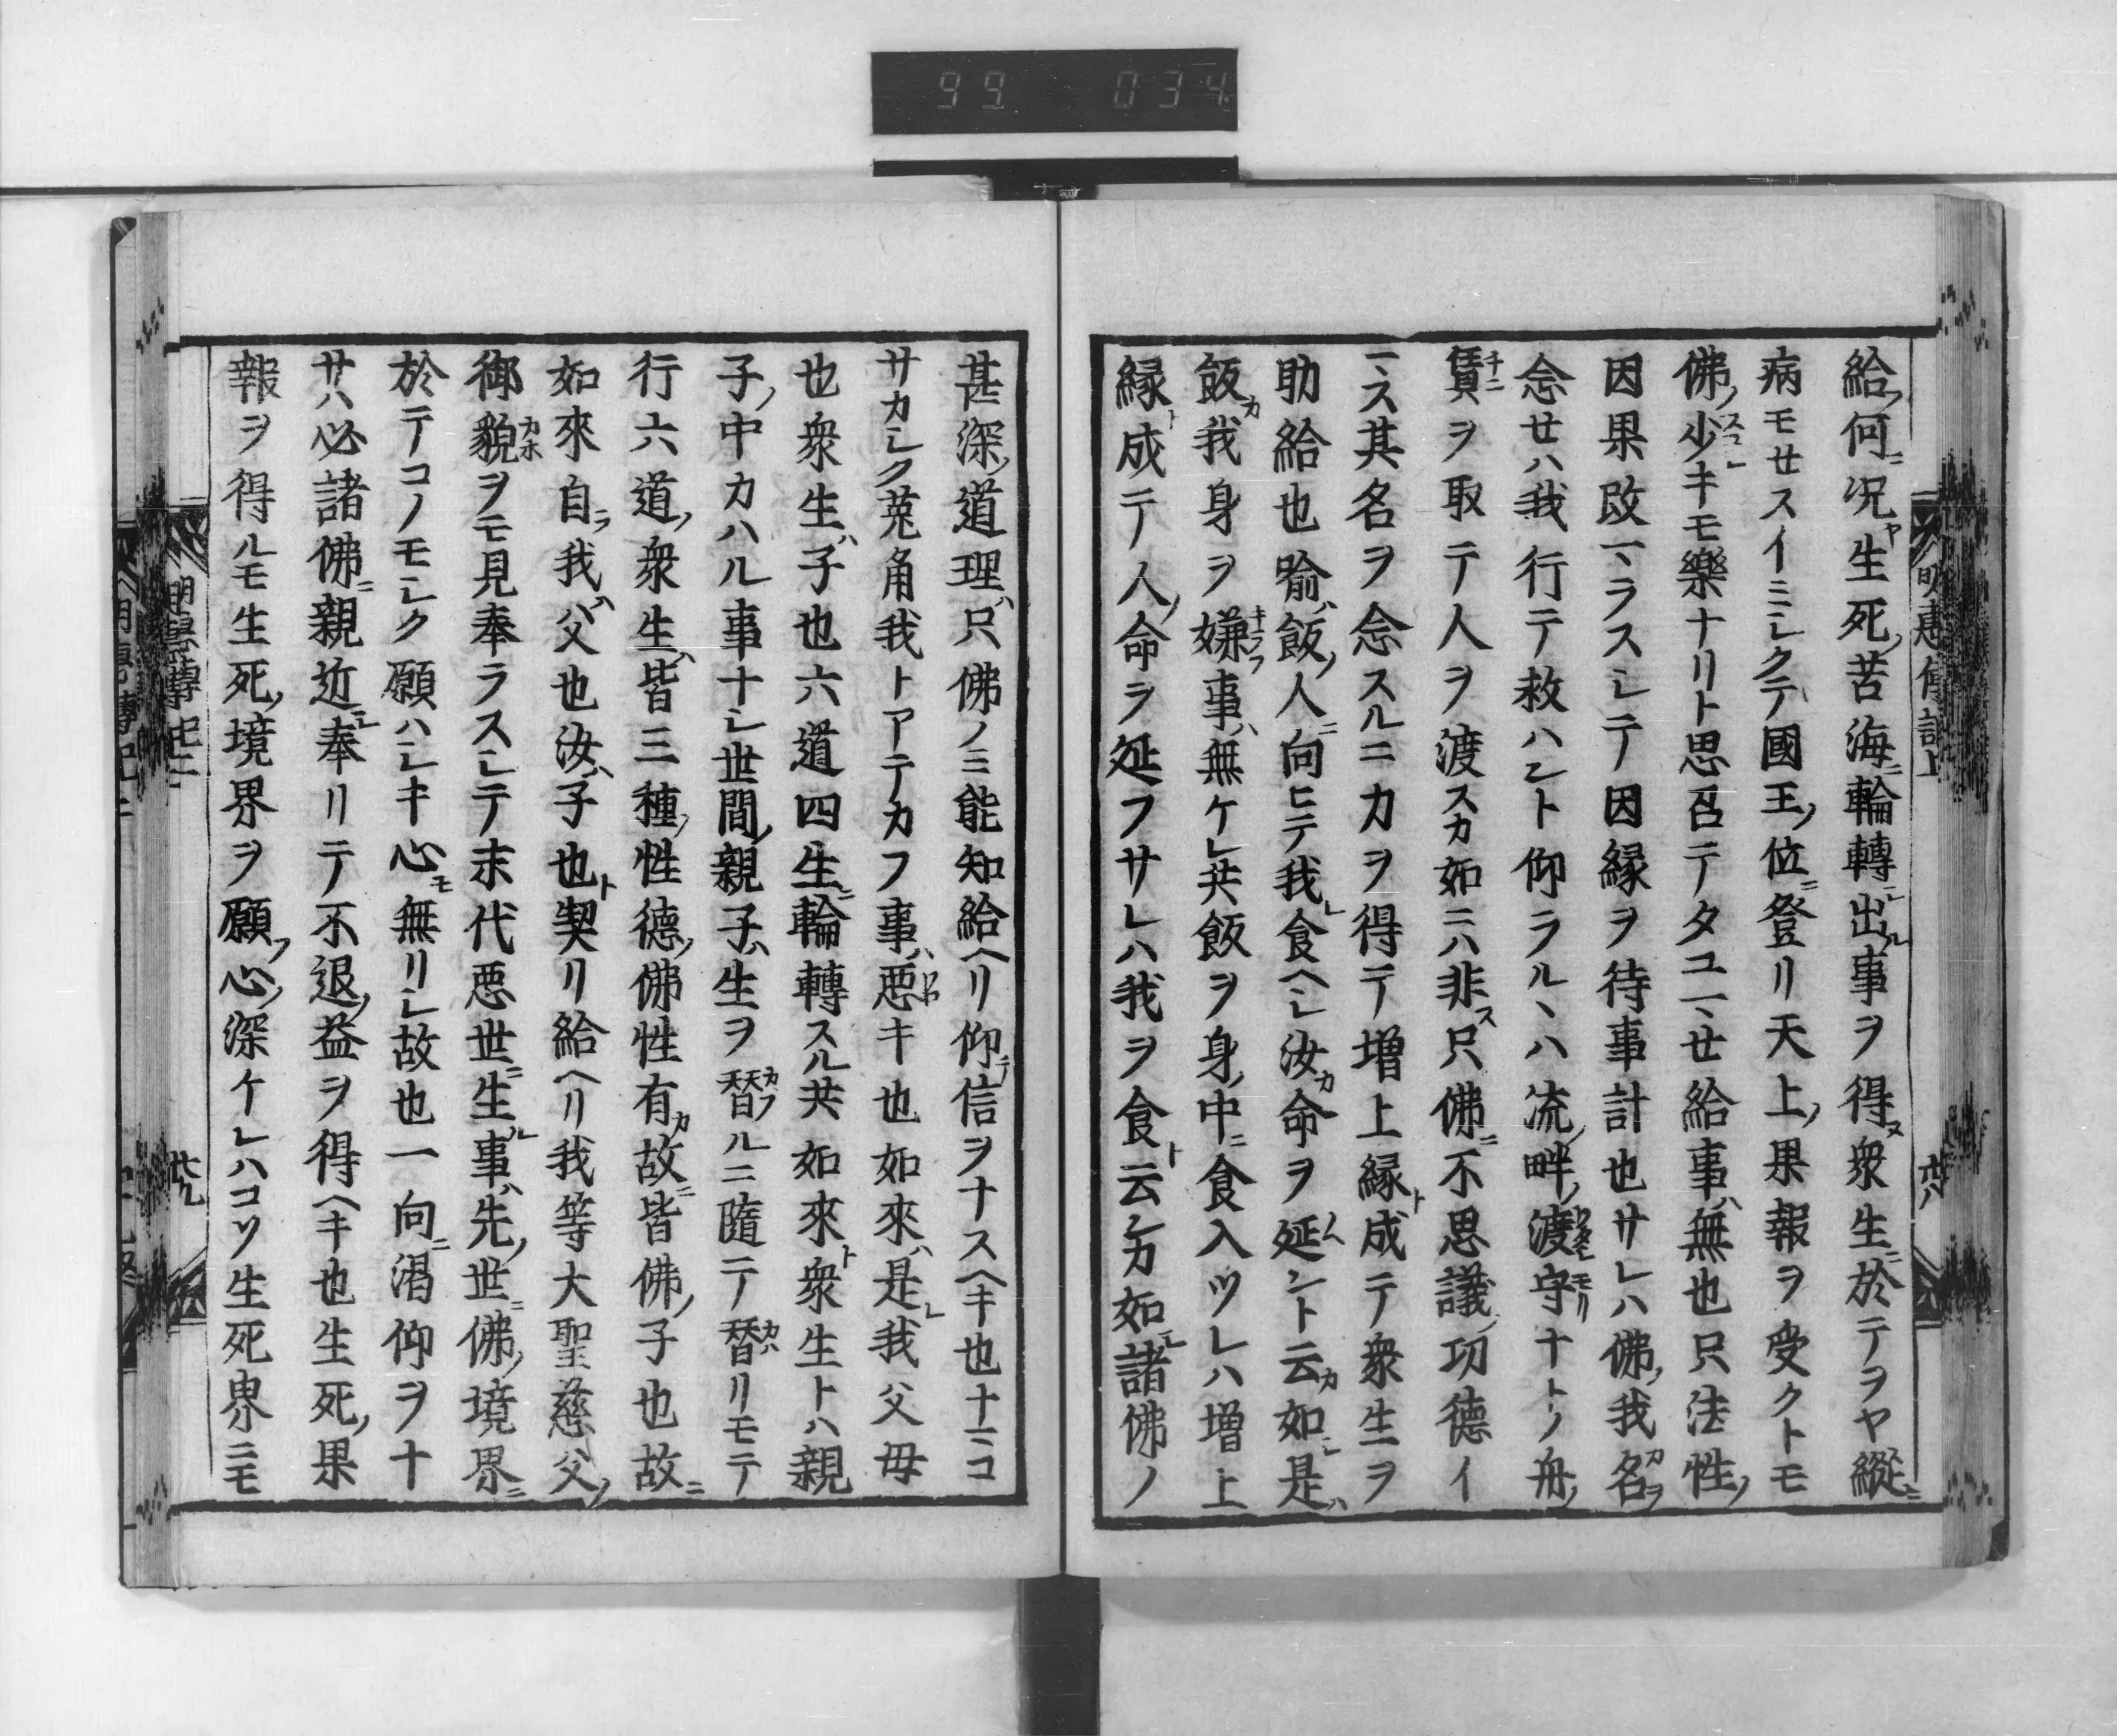 99 034
給フ何ニ況ヤ生死ノ苦海ニ輪轉シ出ル事ヲ得ヌ衆生ニ於テヲヤ縱ニ
病モセスイミシクテ國王ノ位ニ登リ天上ノ果報ヲ受クトモ
佛ノ少スコシキモ樂ナリト思召テタユマセ給事ハ無也只法性ノ
因果改マラスシテ因縁ヲ待事計也サレハ佛ノ我カ名ヲ
念セハ我行テ救ハント仰ラルヽハ流ノ畔ノ渡ワタシ守モリナトノ舟ノ
賃チンヲ取テ人ヲ渡スカ如ニハ非ス只佛ニ不思議ノ功德イ
マス其名ヲ念スルニカヲ得テ増上縁ト成テ衆生ヲ
助給也喩ハ飯ノ人ニ向ヒテ我レ食ヘシ汝カ命ヲ延ント云カ如シ是ハ
飯カ我身ヲ嫌キラフ事ハ無ケレ共飯ヲ身ノ中ニ食入ツレハ増上
縁ト成テ人ノ命ヲ延フサレハ我ヲ食ト云ンカ如シ諸佛ノ
明惠傳記上
廿八
甚深ノ道理ハ只佛ノミ能知給ヘリ仰テ信ヲナスヘキ也ナマコ
サカシク莵角我トアテカフ事ハ惡ワロキ也如來ハ是レ我父母
也衆生ハ子也六道四生ニ輪轉スル共如來ト衆生トハ親
子ノ中カハル事ナシ世間ノ親子ハ生ヲ替カフルニ隨テ替カハリモテ
行六道ノ衆生ハ皆三種ノ性德ノ佛性有カ故ニ皆佛ノ子也故ニ
如來自ラ我ハ父也汝ハ子也ト契リ給ヘリ我等大聖慈父ノ
御貌カホヲモ見奉ラスシテ末代惡世ニ生レ事ハ先ノ世ニ佛ノ境界ニ
於テコノモシク願ハシキ心モ無リシ故也一向ニ渇仰ヲナ
サハ必諸佛ニ親近シ奉リテ不退ノ益ヲ得ヘキ也生死ノ果
報ヲ得ルモ生死ノ境界ヲ願フ心ノ深ケレハコソ生死界ニモ
明惠傳記二
廿九